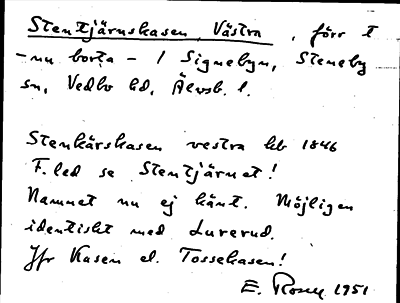 Stentjärnskasen, Västra, förr t
- nu borta - / Signebyn, Steneby
sn, Vedbo hd, Älvsb. l.
Stenkärskasen vestra hb 1846
F. led se Stentjärnet!
Namnet nu ej känt. Möjligen
identiskt med Lurerud.
Jfr Kasen el. Tossekasen!
E. Rosén 1951